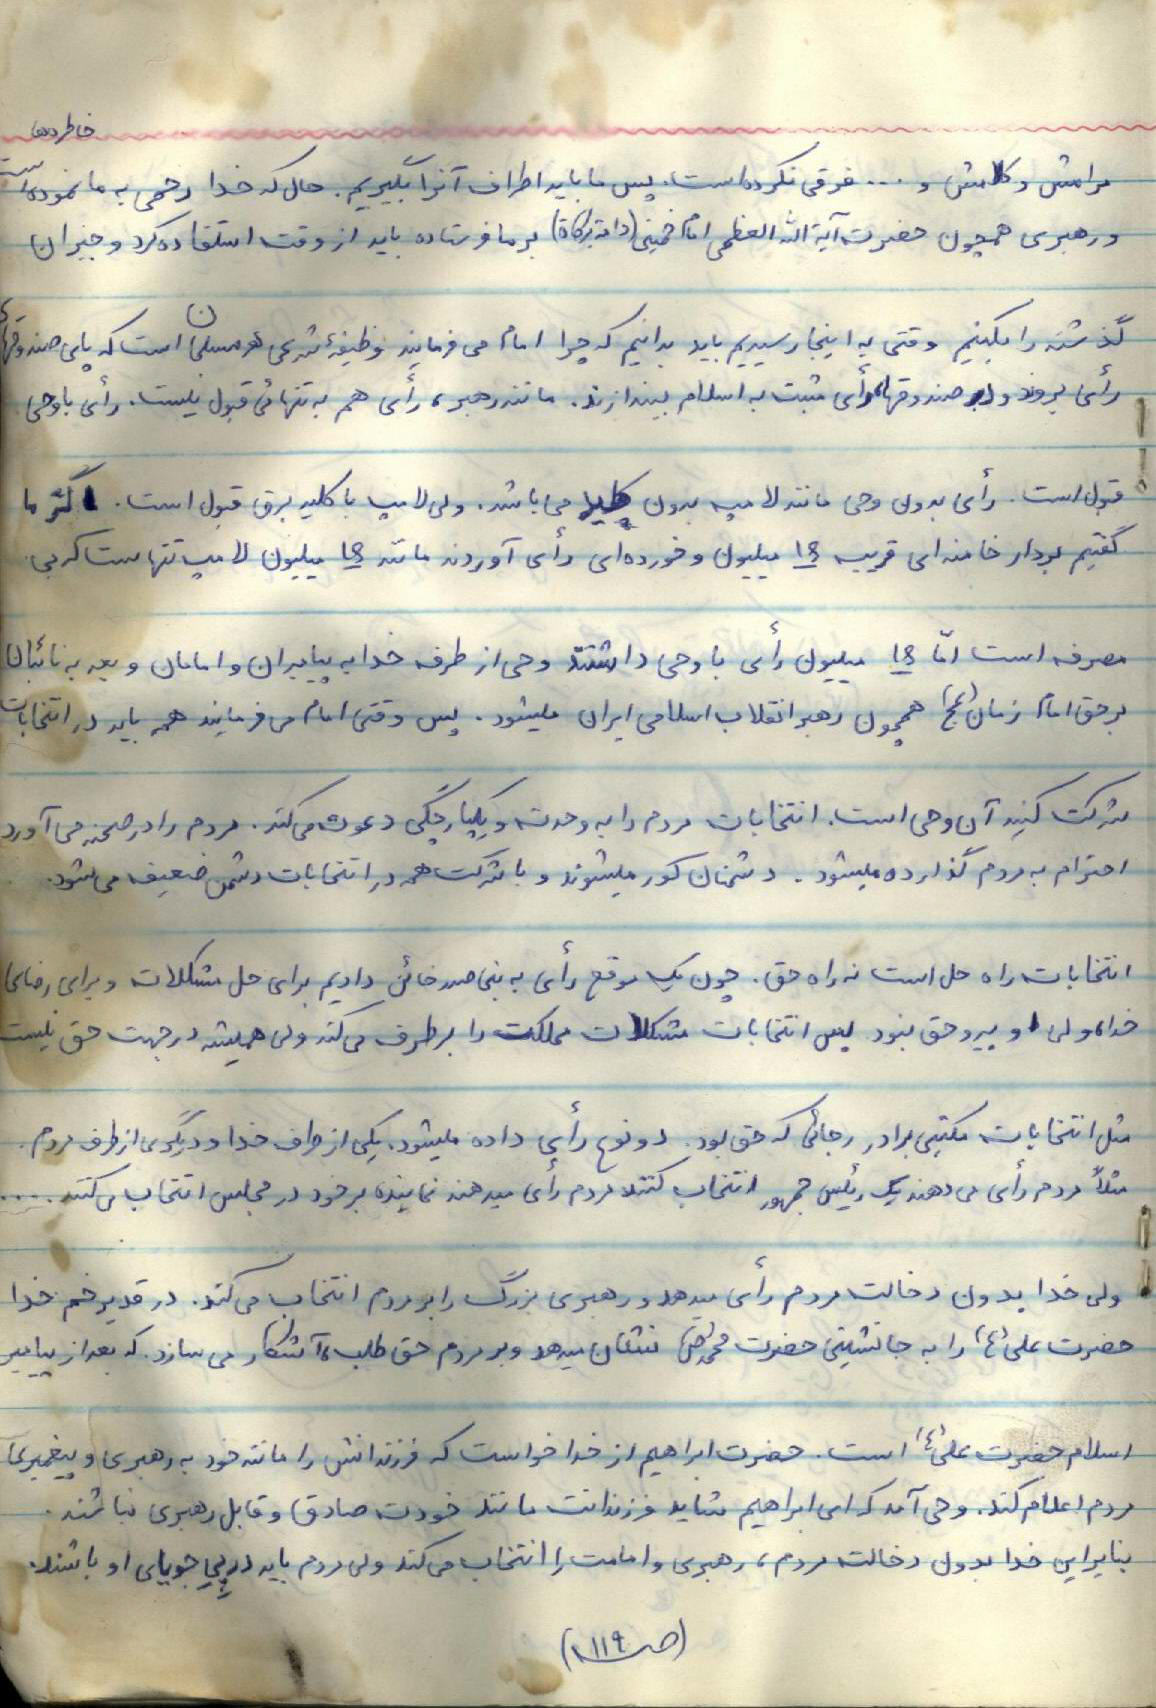 خاطره‌ها
مرامش و کلامش و .... فرقی نکرده است. پس ما باید اطراف آنرا بگیریم. حال که خدا رحمی به ما نموده است
و رهبری همچون حضرت آیة الله العظمی امام خمینی (دامة برکاة) بر ما فرستاده باید از وقت استفاده کرد و جبران
گذشته را بکنیم وقتی به اینجا رسیدیم باید بدانیم که چرا امام می فرمایند وظیفهٔ شرعی هر مسلمان است که پای صندوقهای
رأی بروند و در صندوقها، رأی مثبت به اسلام بیندازند. مانند رهبر، رأی هم به تنهائی قبول نیست. رأی با وحی
قبول است. رأی بدون وحی مانند لامپ بدون کلید می باشد. ولی لامپ با کلید برق قبول است. اگر ما
گفتیم بردار خامنه ای قریب ۱۶ میلیون و خورده‌ای رأی آوردند مانند ۱۶ میلیون لامپ تنهاست که بی
مصرف است امّا ۱۶ میلیون رأی با وحی داشتند وحی از طرف خدا به پیامبران و امامان و بعد به نائبان
بر حق امام زمان (عج) همچون رهبر انقلاب اسلامی ایران میشود. پس وقتی امام می فرمایند همه باید در انتخابات
شرکت کنید آن وحی است. انتخابات مردم را به وحدت و یکپارچگی دعوت می کند. مردم را در صحنه می آورد
احترام به مردم گذارده میشود. دشمنان کور میشوند و با شرکت همه در انتخابات دشمن ضعیف می شود.
انتخابات راه حل است نه راه حق. چون یک موقع رأی به بنی صدر خائن دادیم برای حل مشکلات و برای رضای
خدا، ولی او پیرو حق نبود پس انتخابات مشکلات مملکت را برطرف می کند ولی همیشه در جهت حق نیست
مثل انتخابات مکتبی برادر رجائی که حق بود. دو نوع رأی داده میشود. یکی از طرف خدا و دیگری از طرف مردم.
مثلاً مردم رأی می دهند یک رئیس جمهور انتخاب کنند مردم رأی میدهند نماینده بر خود در مجلس انتخاب می کنند .....
ولی خدا بدون دخالت مردم رأی میدهد و رهبری بزرگ را بر مردم انتخاب می کند. در قدیر خم خدا
حضرت علی (ع) را به جانشینی حضرت محمد (ص) نشان میدهد و بر مردم حق طلب، آشکار می سازد. که بعد از پیامبر
اسلام حضرت علی (ع) است. حضرت ابراهیم از خدا خواست که فرزندانش را مانند خود به رهبری و پیغمبری
مردم اعلام کند. وحی آمد که ای ابراهیم شاید فرزندانت مانند خودت صادق و قابل رهبری نباشند.
بنابراین خدا بدون دخالت مردم، رهبری و امامت را انتخاب می کند ولی مردم باید در پی جویای او باشند.
(ص ۱۱۹)